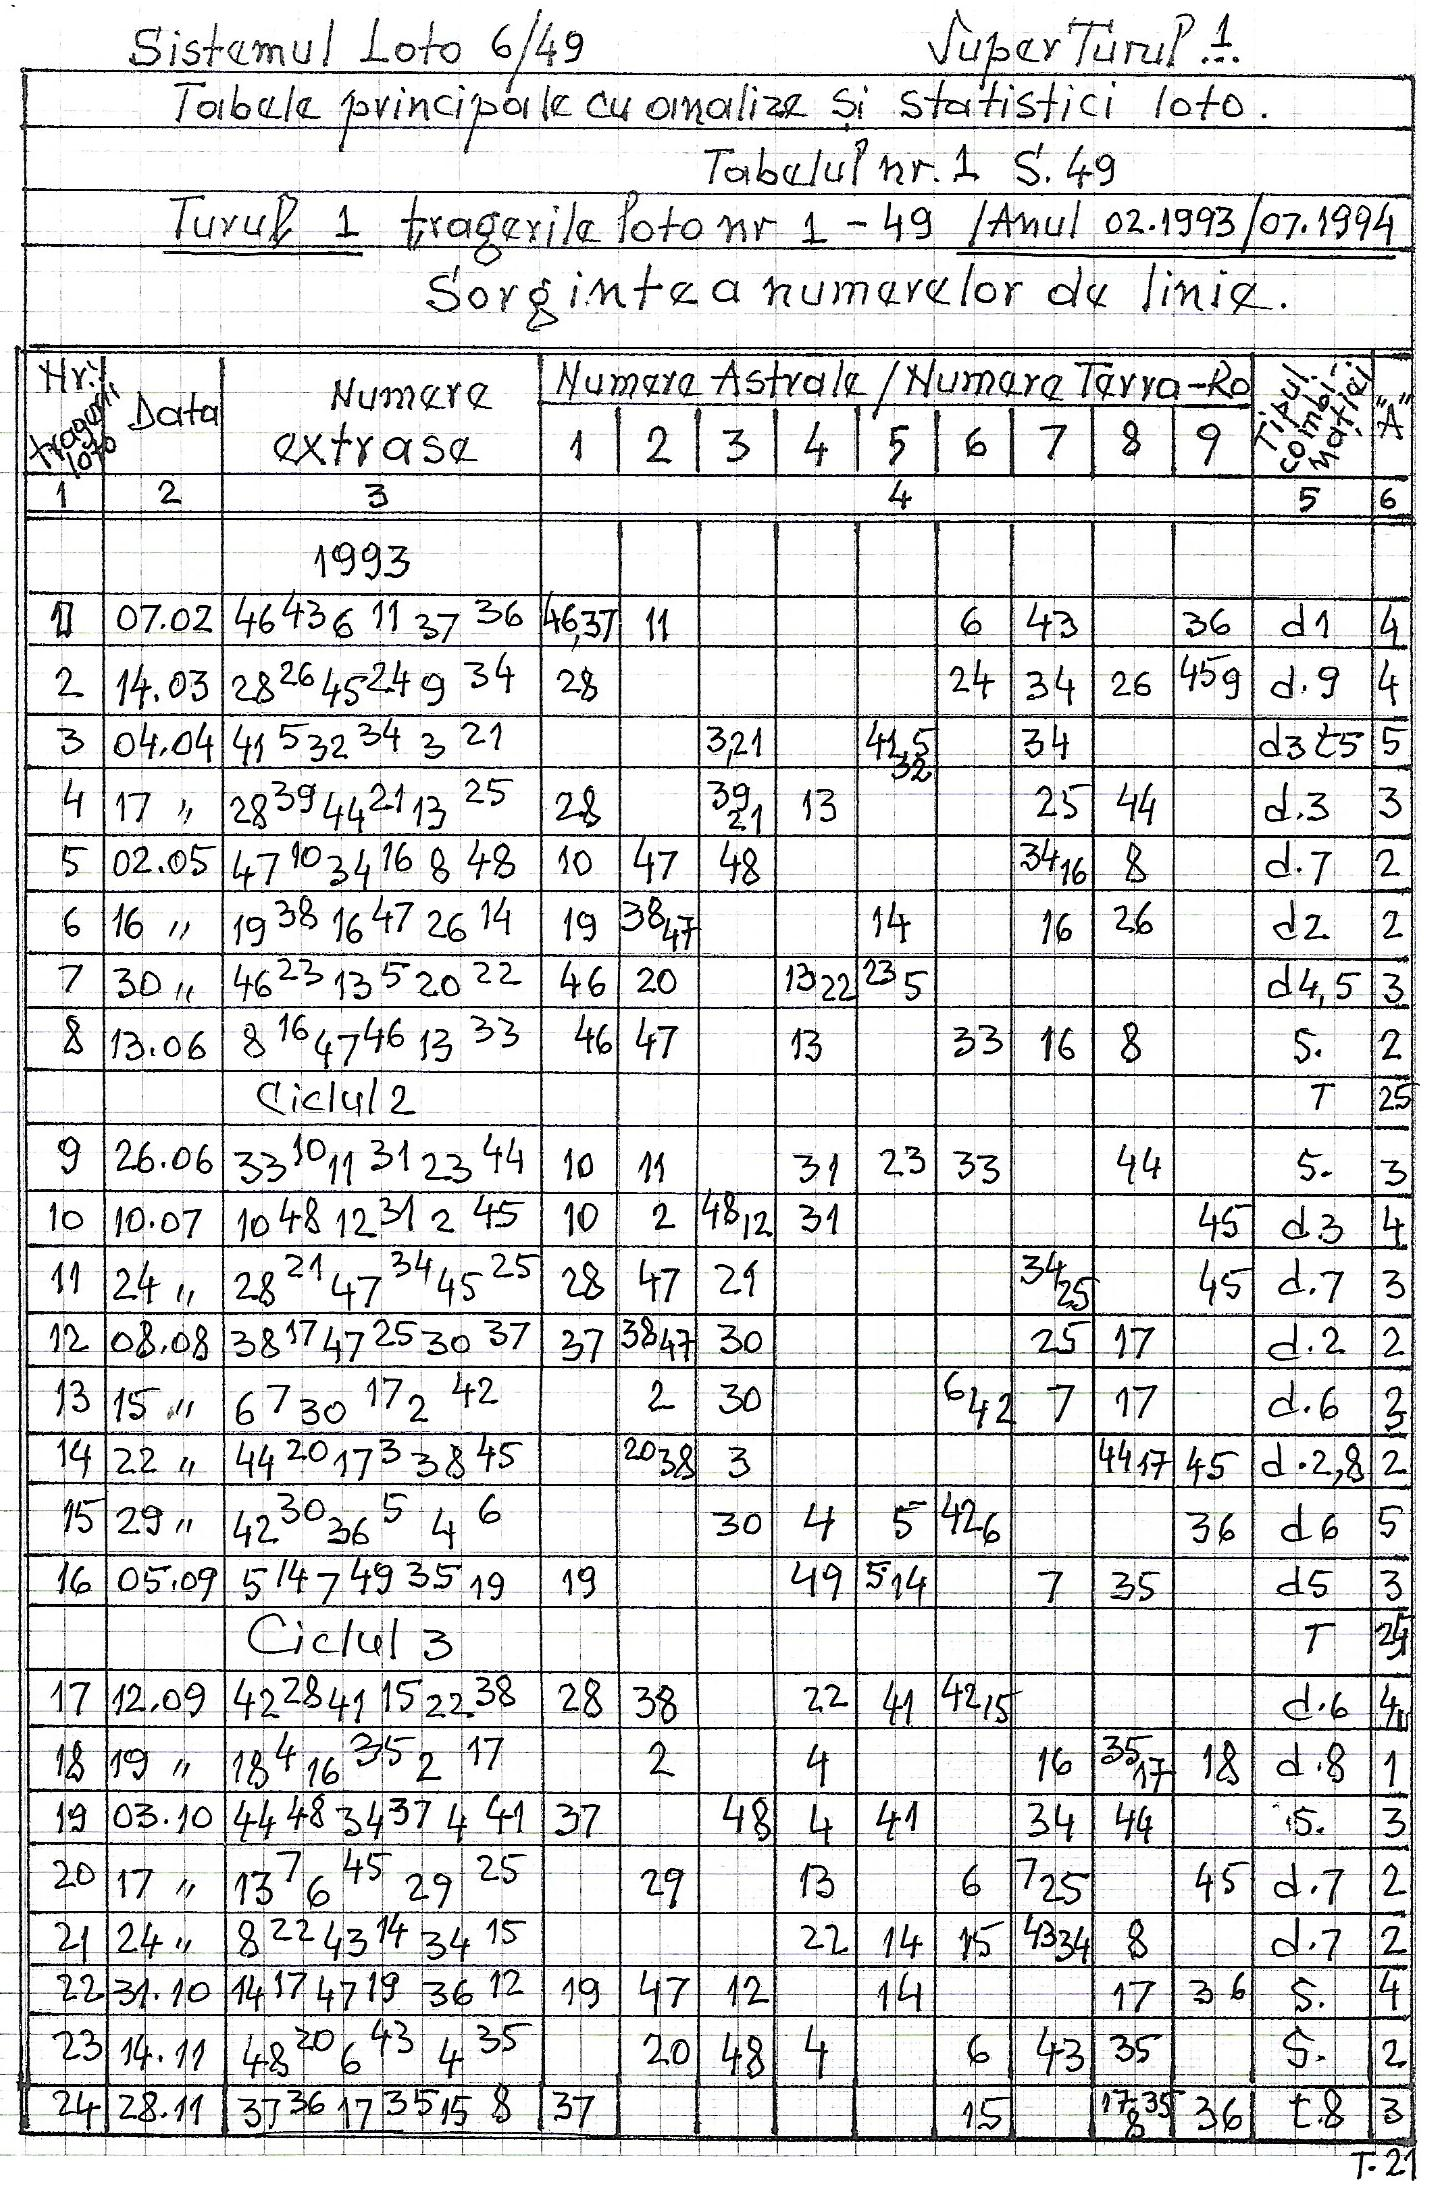 Sistemul Loto 6/49 SuperTurul 1.
Tabele principale cu analize și statistici loto.
Tabelul nr. 1 S. 49
Turul 1 tragerile loto nr 1 - 49 /Anul 02.1993/07.1994
Sorgintea numerelor de linie.
Nr. tragerii loto Data Numere extrase Numere Astrale / Numere Terra-Ro Tipul combinației "A"
1 2 3 4 5 6 7 8 9
1 2 3 4 5 6
1993
1 07.02 46 43 6 11 37 36 46,37 11 6 43 36 d1 4
2 14.03 28 26 45 24 9 34 28 24 34 26 45 9 d.9 4
3 04.04 41 5 32 34 3 21 3,21 41,5 32 34 d3 t5 5
4 17 " 28 39 44 21 13 25 28 39 21 13 25 44 d.3 3
5 02.05 47 10 34 16 8 48 10 47 48 34 16 8 d.7 2
6 16 " 19 38 16 47 26 14 19 38 47 14 16 26 d2 2
7 30 " 46 23 13 5 20 22 46 20 13 22 23 5 d4,5 3
8 13.06 8 16 47 46 13 33 46 47 13 33 16 8 S. 2
Ciclul 2 T 25
9 26.06 33 10 11 31 23 44 10 11 31 23 33 44 S. 3
10 10.07 10 48 12 31 2 45 10 2 48,12 31 45 d.3 4
11 24 " 28 21 47 34 45 25 28 47 21 34 25 45 d.7 3
12 08.08 38 17 47 25 30 37 37 38 47 30 25 17 d.2 2
13 15 " 6 7 30 17 2 42 2 30 6 42 7 17 d.6
14 22 " 44 20 17 3 38 45 20 38 3 44 17 45 d.2,8 2
15 29 " 42 30 36 5 4 6 30 4 5 42 6 36 d6 5
16 05.09 5 14 7 49 35 19 19 49 5 14 7 35 d5 3
Ciclul 3 T
17 12.09 42 28 41 15 22 38 28 38 22 41 42 15 d.6 4
18 19 " 18 4 16 35 2 17 2 4 16 35 17 18 d.8 1
19 03.10 44 48 34 37 4 41 37 48 4 41 34 44 S. 3
20 17 " 13 7 6 45 29 25 29 13 6 7 25 45 d.7 2
21 24 " 8 22 43 14 34 15 22 14 15 43 34 8 d.7 2
22 31.10 14 17 47 19 36 12 19 47 12 14 17 36 S. 4
23 14.11 48 20 6 43 4 35 20 48 4 6 43 35 S. 2
24 28.11 37 36 17 35 15 8 37 15 17 35 8 36 t.8 3
T. 21